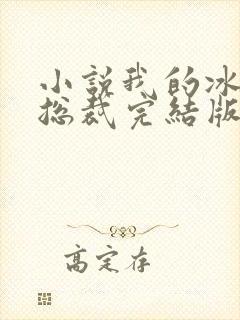 小說我的冰
总裁完結版
高定存